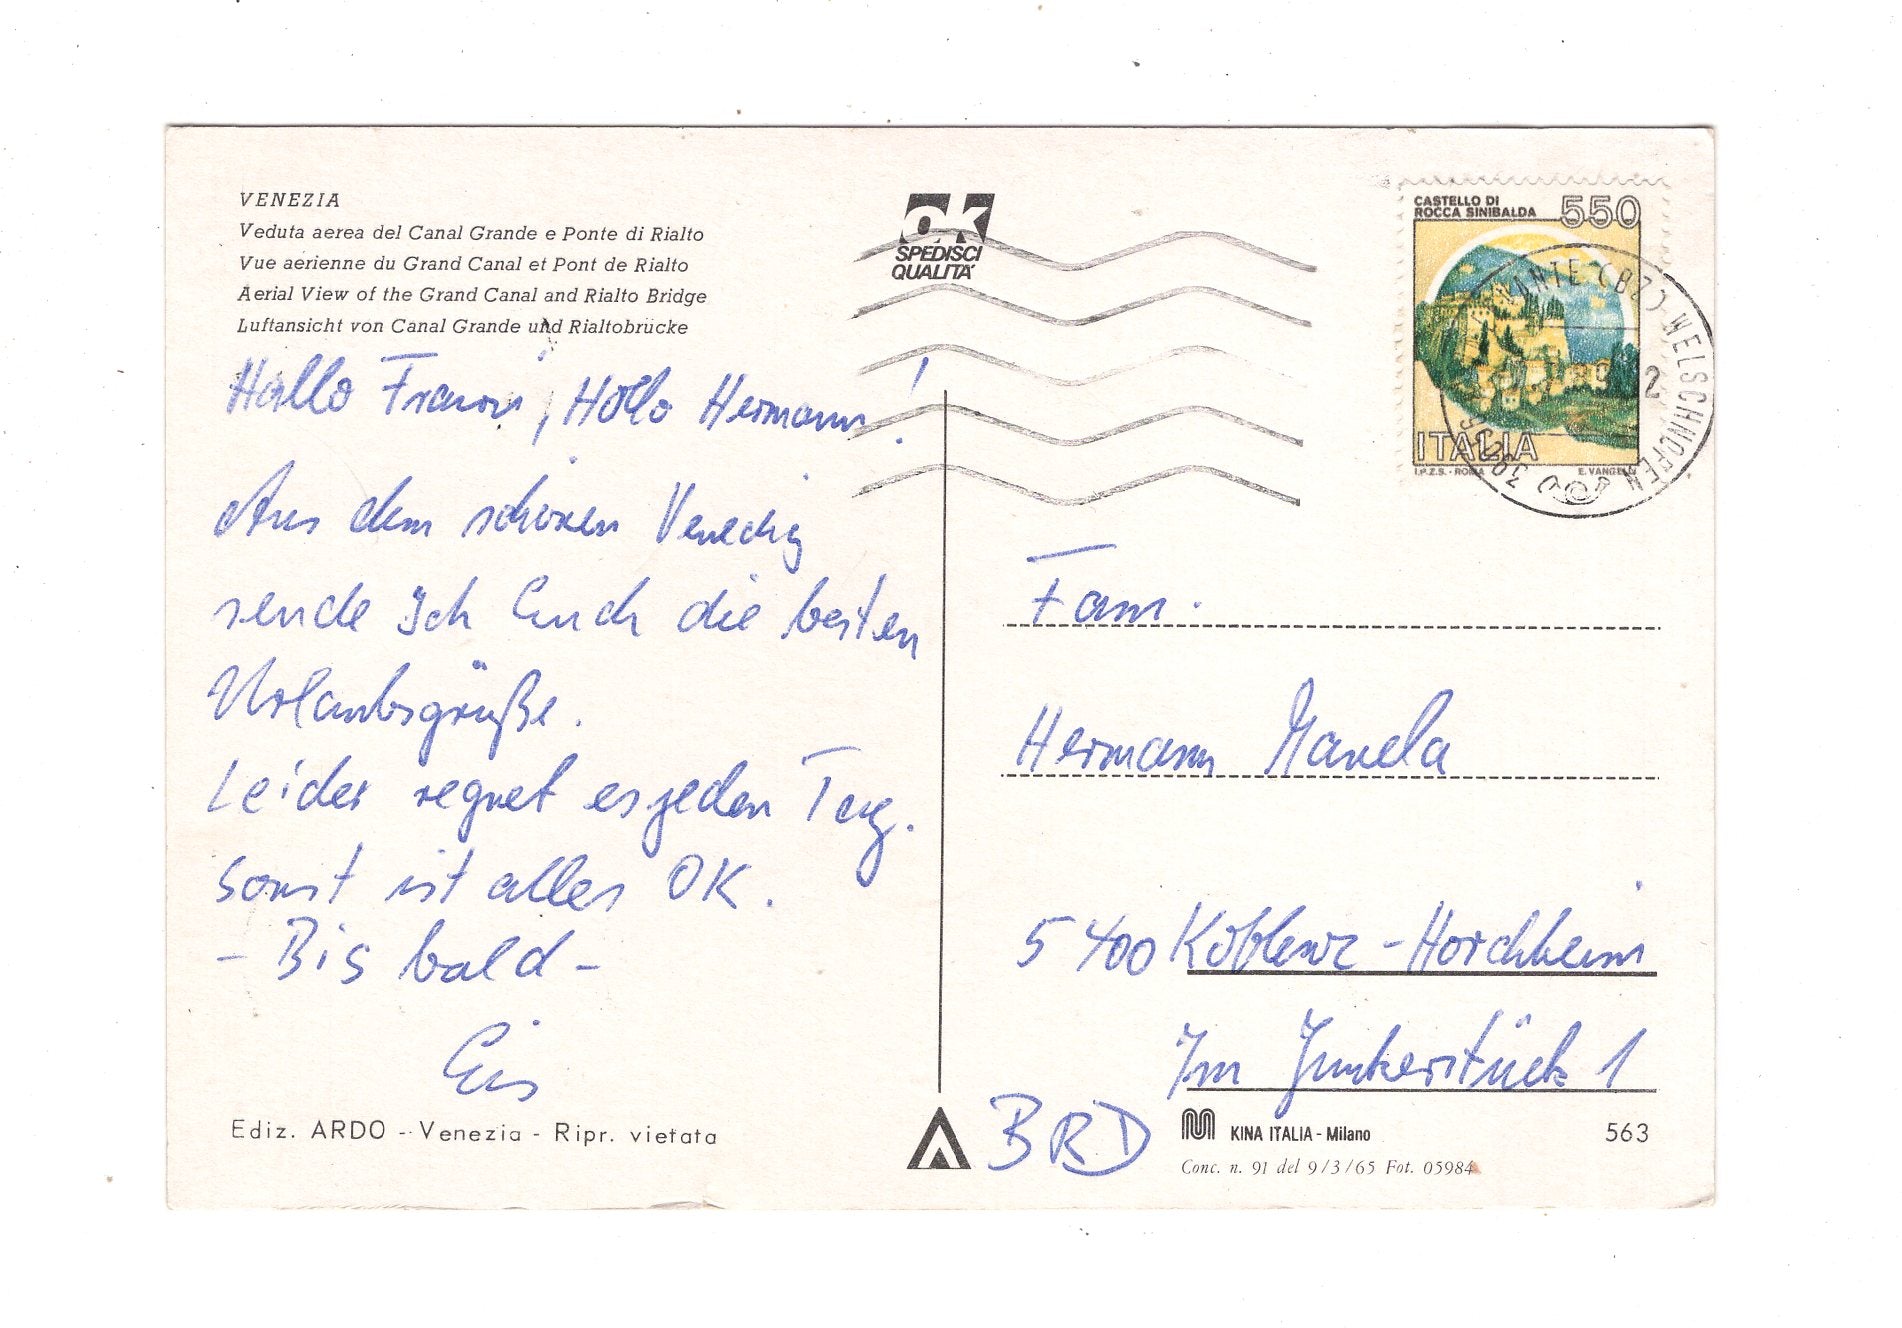 VENEZIA
Veduta aerea del Canal Grande e Ponte di Rialto
Vue aerienne du Grand Canal et Pont de Rialto
Aerial View of the Grand Canal and Rialto Bridge
Luftansicht von Canal Grande und Rialtobrücke
Hallo Franni, Hallo Hermann!
Aus dem schönen Venedig
sende Ich Euch die besten
Urlaubsgrüße.
Leider regnet es jeden Tag.
Sonst ist alles OK.
- Bis bald -
Ediz. ARDO - Venezia - Ripr. vietata
OK
SPEDISCI
QUALITA'
CASTELLO DI
ROCCA SINIBALDA 550
ITALIA
I.P.Z.S. - ROMA E. VANGELLI
NTE (BZ) WELSCHNOFEN
Fam.
Hermann Manela
5400 Koblenz-Horchheim
Im Junkerstück 1
BRD
KINA ITALIA - Milano
563
Conc. n. 91 del 9/3/65 Fot. 05984